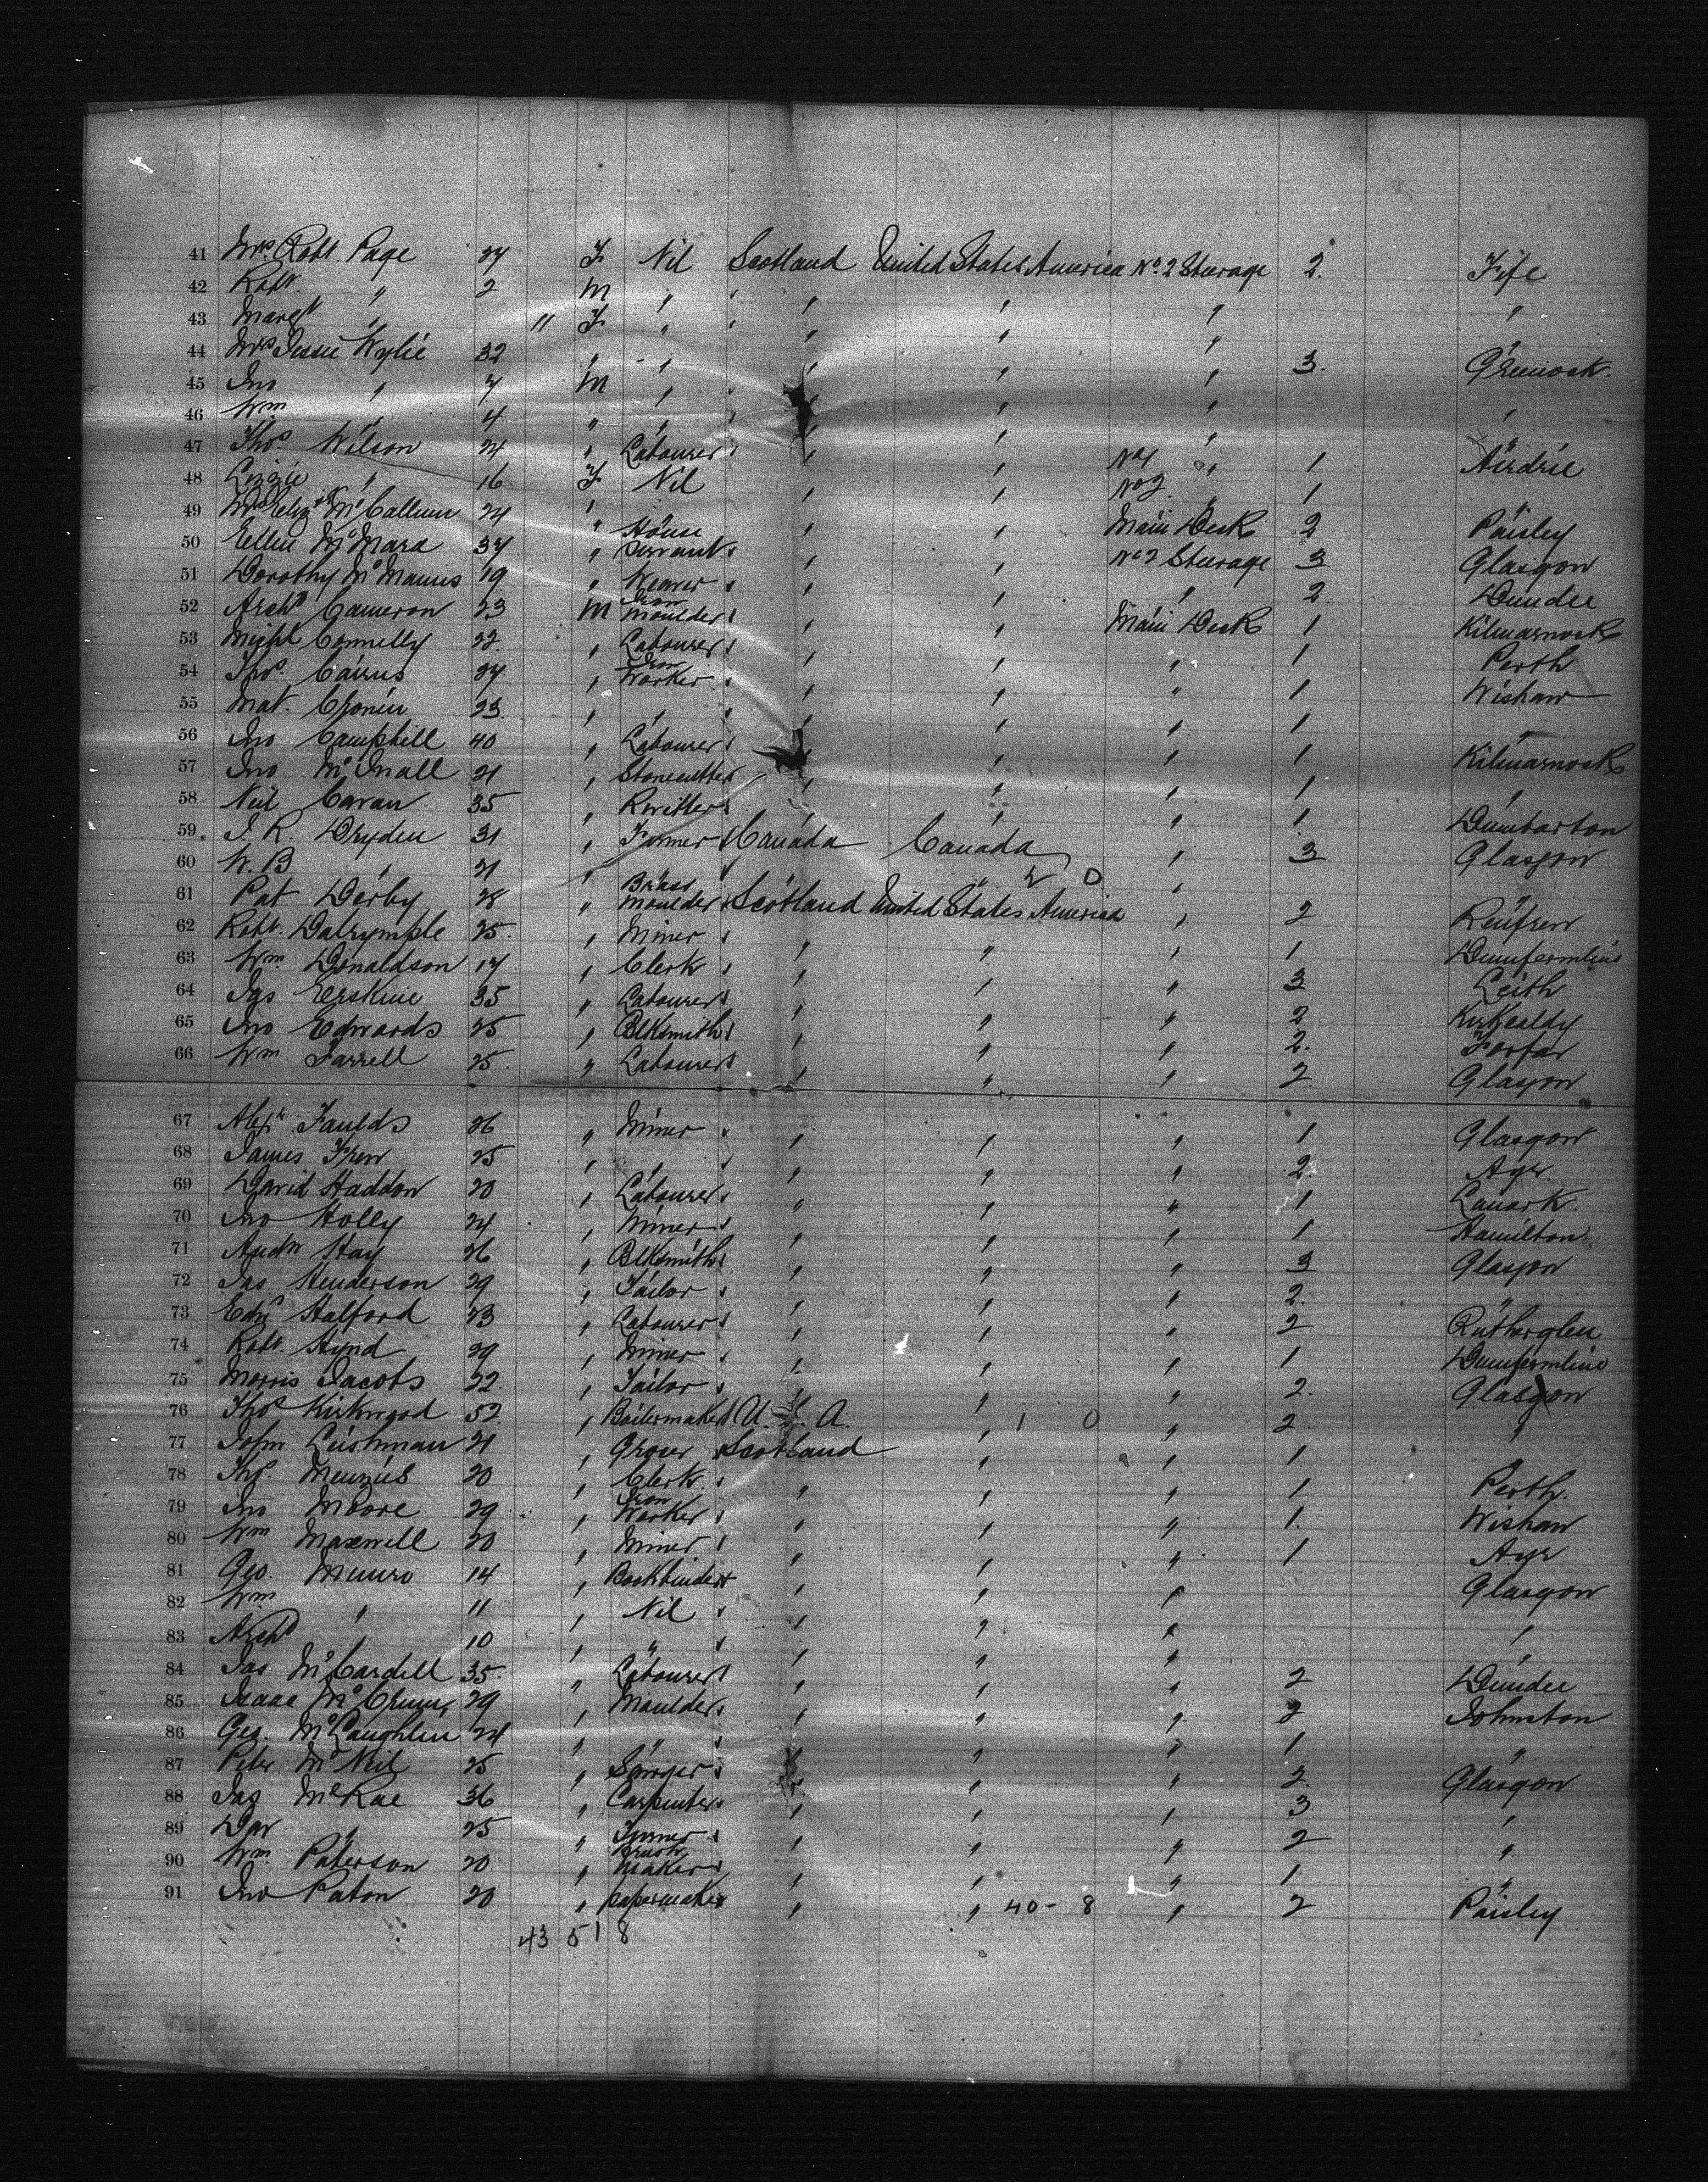 41 Mrs Robt Page 27 F Nil Scotland United States America No 2 Steerage 2 Fife
42 Robt " 2 M " " " " " "
43 Margt " 11 F " " " " "
44 Mrs Jessie Wylie 32 " " " " " 3 Greenock
45 Jno " 7 M " " " " "
46 Wm " 4 " " " " " "
47 Thos Wilson 24 " Labourer " " No 1 " 1 Airdrie
48 Lizzie " 16 F Nil " " No 2 " 1
49 Mrs Elizth McCallum 24 " " " Main Deck 2 Paisley
50 Ellen McMara 37 " House Servant " " No 2 Steerage 3 Glasgow
51 Dorothy McManus 19 " Weaver " " " 2 Dundee
52 Archd Cameron 23 M Iron Moulder " " Main Deck 1 Kilmarnock
53 Michl Connelly 22 " Labourer " " " 1 Perth
54 Thos Cairns 27 " Iron Worker " " " 1 Wishaw
55 Mat. Cronin 23 " " " " " 1 "
56 Jno Campbell 40 " Labourer " " " 1 Kilmarnock
57 Jno 21 " Stonecutter " " " 1 "
58 Neil Cavan 35 " Rivitter " " " 1 Dumbarton
59 J. R. Dryden 31 " Farmer Canada Canada " 3 Glasgow
60 W. B " 21 " " " 2 0 "
61 Pat Derby 28 " Brass Moulder Scotland United States America " 2 Renfrew
62 Robt. Dalrymple 25 " Miner " " " 1 Dunfermline
63 Wm Donaldson 17 " Clerk " " " 3 Leith
64 Jas Erskine 35 " Labourer " " " 2 Kirkcaldy
65 Jno Edwards 25 " Blksmith " " " 2 Forfar
66 Wm Farrell 25 " Labourer " " " 2 Glasgow
67 Alexr Faulds 26 " Miner " " " 1 Glasgow
68 James Frew 25 " " " " " 2 Ayr
69 David Haddon 20 " Labourer " " " 1 Lanark
70 Jno Holly 24 " Miner " " " 1 Hamilton
71 Andw Hay 26 " Blksmith " " " 3 Glasgow
72 Jas Henderson 29 " Tailor " " " 2 "
73 Edwd Halford 23 " Labourer " " " 2 Rutherglen
74 Robt. Hynd 29 " Miner " " " 1 Dunfermline
75 Morris Jacobs 22 " Tailor " " " 2 Glasgow
76 Thos Kirkwood 52 " Boilermaker U. S. A. " 1 0 " 2 "
77 John Leishman 21 " Grocer Scotland " " 1
78 Thos. Menzies 20 " Clerk " " " 1 Perth
79 Jno Moore 29 " Iron Worker " " " 1 Wishaw
80 Wm Maxwell 20 " Miner " " " 1 Ayr
81 Geo. Munro 14 " Bookbinder " " " Glasgow
82 Wm " 11 " Nil " " "
83 Archd " 10 " " " " " "
84 Jas McCardell 35 " Labourer " " " 2 Dundee
85 Isaac 29 " Moulder " " " 2 Johnston
86 Geo. McLaughlin 24 " " " " " 1 "
87 Peter McNeil 25 " " " " 2 Glasgow
88 Jas McRae 36 " Carpenter " " " 3 "
89 " 25 " " " " 2 "
90 Wm. Paterson 20 " Brush Maker " " " 1 "
91 Jno Paton 20 " papermaker " " 40 - 8 " 2 Paisley
43 51 8